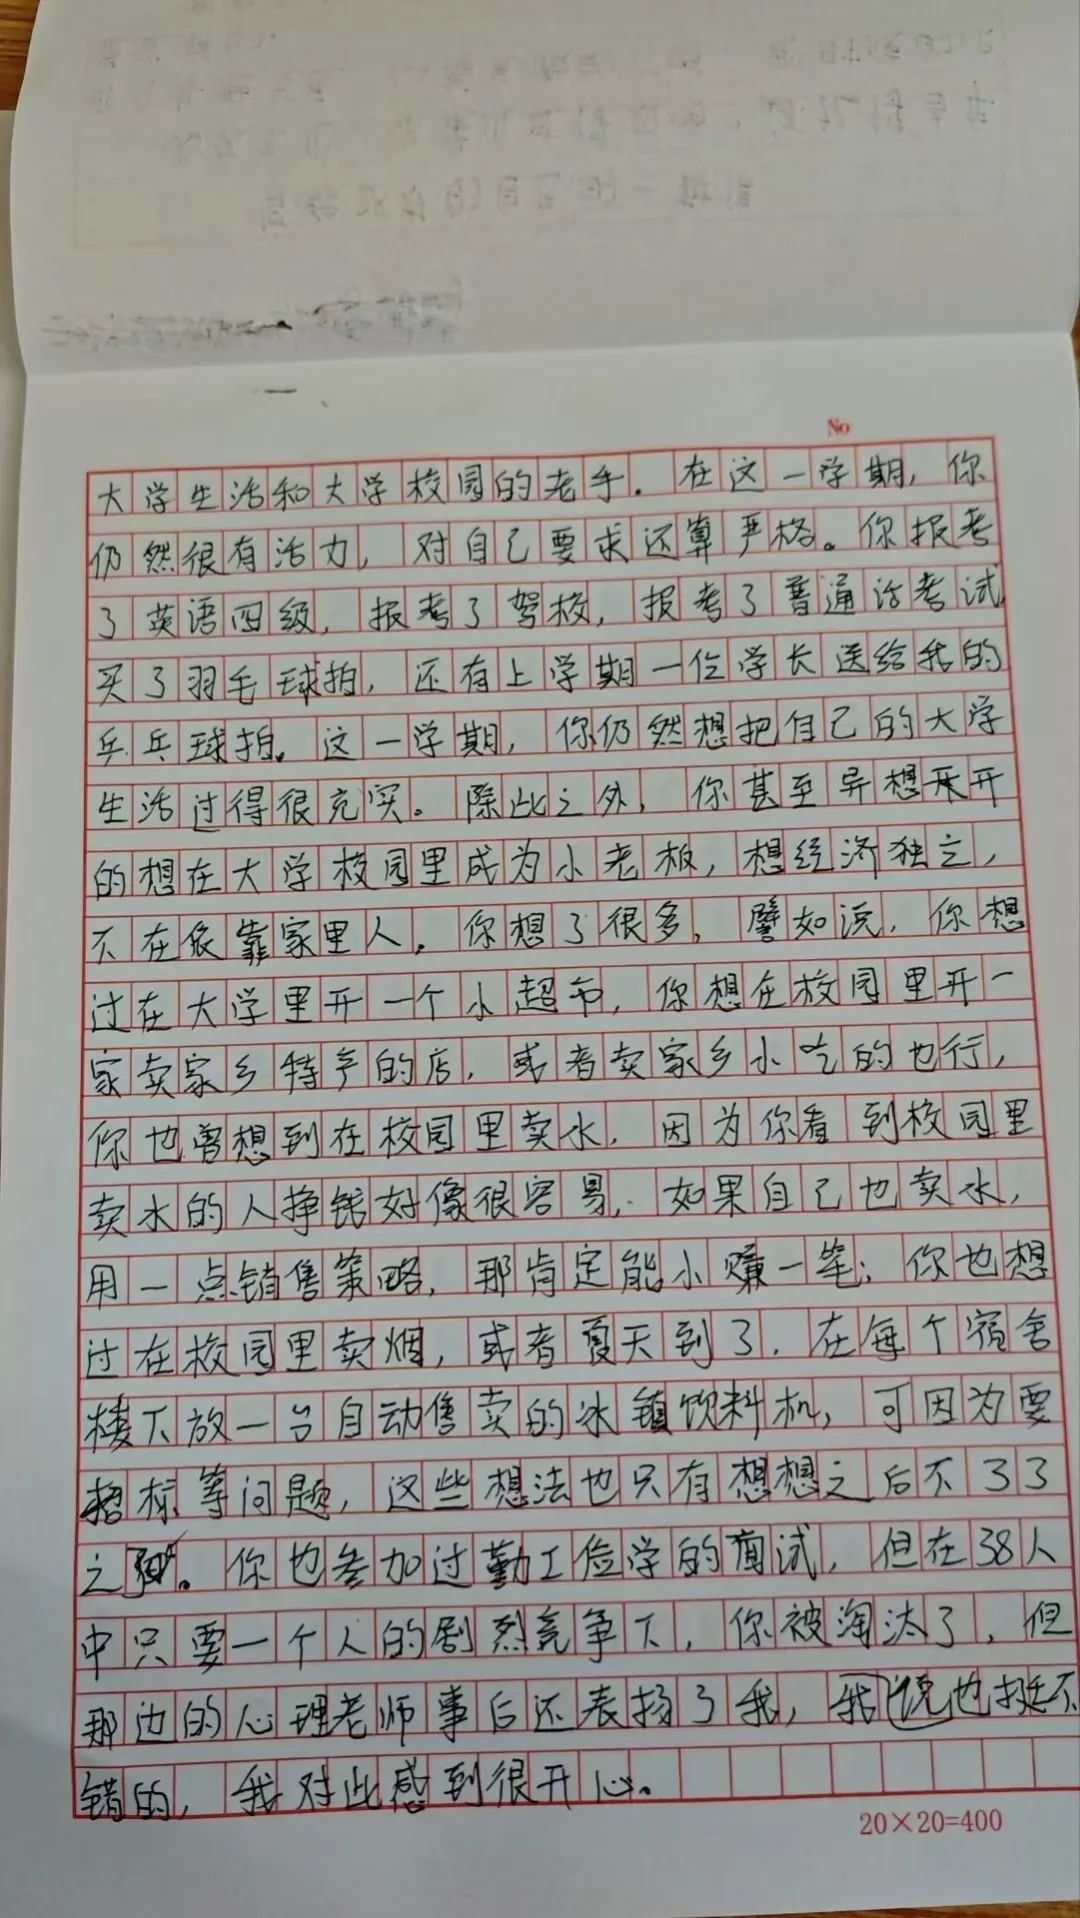 No
大学生活和大学校园的老手.在这一学期,你
仍然很有活力,对自己要求还算严格。你报考
了英语四级,报考了驾校,报考了普通话考试,
买了羽毛球拍,还有上学期一位学长送给我的
乒乓球拍。这一学期,你仍然想把自己的大学
生活过得很充实。除此之外,你甚至异想天开
的想在大学校园里成为小老板,想经济独立,
不在依靠家里人。你想了很多,譬如说,你想
过在大学里开一个小超市,你想在校园里开一
家卖家乡特产的店,或者卖家乡小吃的也行,
你也曾想到在校园里卖水,因为你看到校园里
卖水的人挣钱好像很容易,如果自己也卖水,
用一点销售策略,那肯定能小赚一笔;你也想
过在校园里卖烟,或者夏天到了,在每个宿舍
楼下放一台自动售卖的冰镇饮料机,可因为要
招标等问题,这些想法也只有想想之后不了了
之。你也参加过勤工俭学的面试,但在38人
中只要一个人的剧烈竞争下,你被淘汰了,但
那边的心理老师事后还表扬了我,我说也挺不
错的,我对此感到很开心。
20×20=400